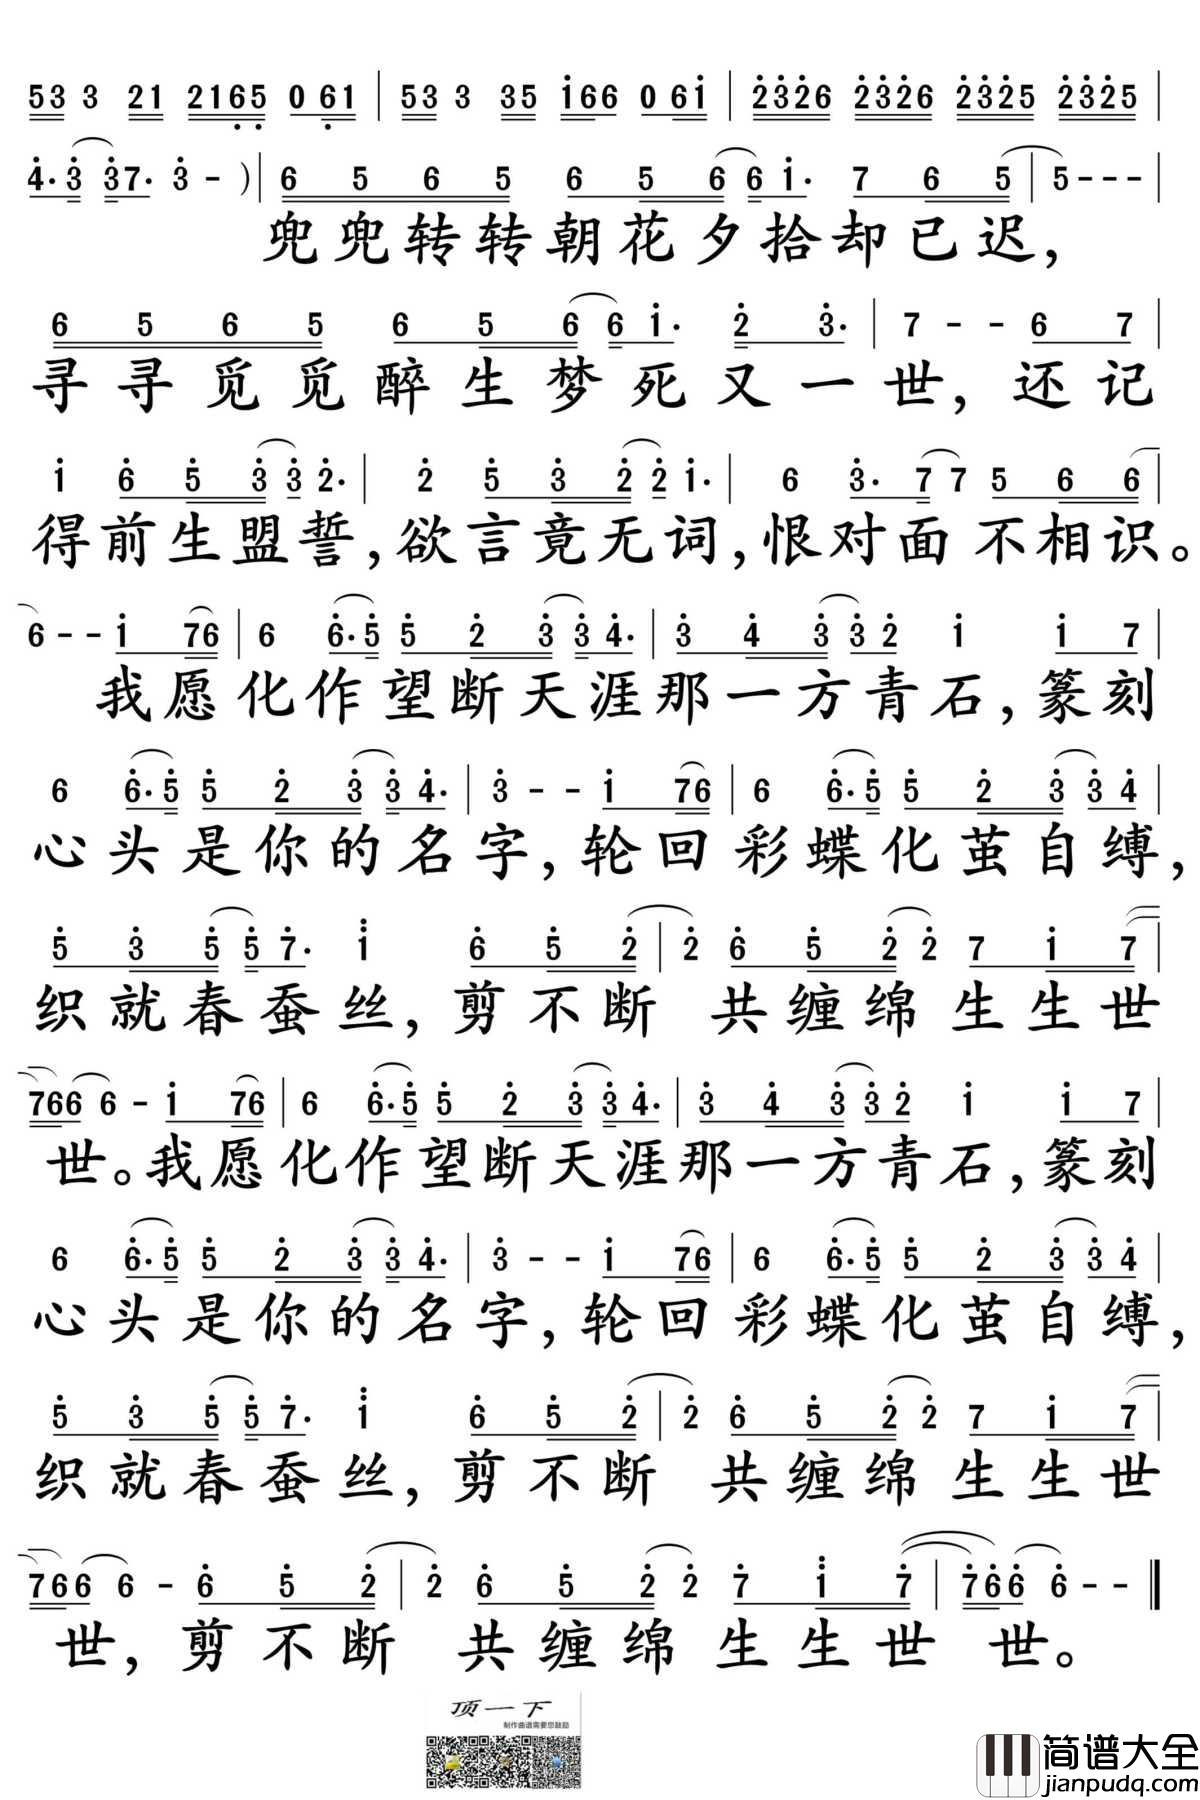 53 3 21 2165 0 61 | 53 3 35 i66 0 6i | 2326 2326 2325 2325 |
4· 3 37· 3 - ) | 6 5 6 5 6 5 6 6 i· 7 6 5 | 5 - - - |
兜兜转转朝花夕拾却已迟，
6 5 6 5 6 5 6 6 i· 2 3· | 7 - - 6 7 |
寻寻觅觅醉生梦死又一世，还记
i 6 5 3 3 2· | 2 5 3 2 2 i· | 6 3· 7 7 5 6 6 |
得前生盟誓，欲言竟无词，恨对面不相识。
6 - - i 76 | 6 6· 5 5 2 3 3 4· | 3 4 3 3 2 i i 7 |
我愿化作望断天涯那一方青石，篆刻
6 6· 5 5 2 3 3 4· | 3 - - i 76 | 6 6· 5 5 2 3 3 4 |
心头是你的名字，轮回彩蝶化茧自缚，
5 3 5 5 7· i 6 5 2 | 2 6 5 2 2 7 i 7 |
织就春蚕丝，剪不断 共缠绵生生世
766 6 - i 76 | 6 6· 5 5 2 3 3 4· | 3 4 3 3 2 i i 7 |
世。我愿化作望断天涯那一方青石，篆刻
6 6· 5 5 2 3 3 4· | 3 - - i 76 | 6 6· 5 5 2 3 3 4 |
心头是你的名字，轮回彩蝶化茧自缚，
5 3 5 5 7· i 6 5 2 | 2 6 5 2 2 7 i 7 |
织就春蚕丝，剪不断 共缠绵生生世
766 6 - 6 5 2 | 2 6 5 2 2 7 i 7 | 766 6 - - ‖
世，剪不断 共缠绵生生世 世。
顶一下
制作曲谱需要您鼓励
简谱大全
jianpudq.com